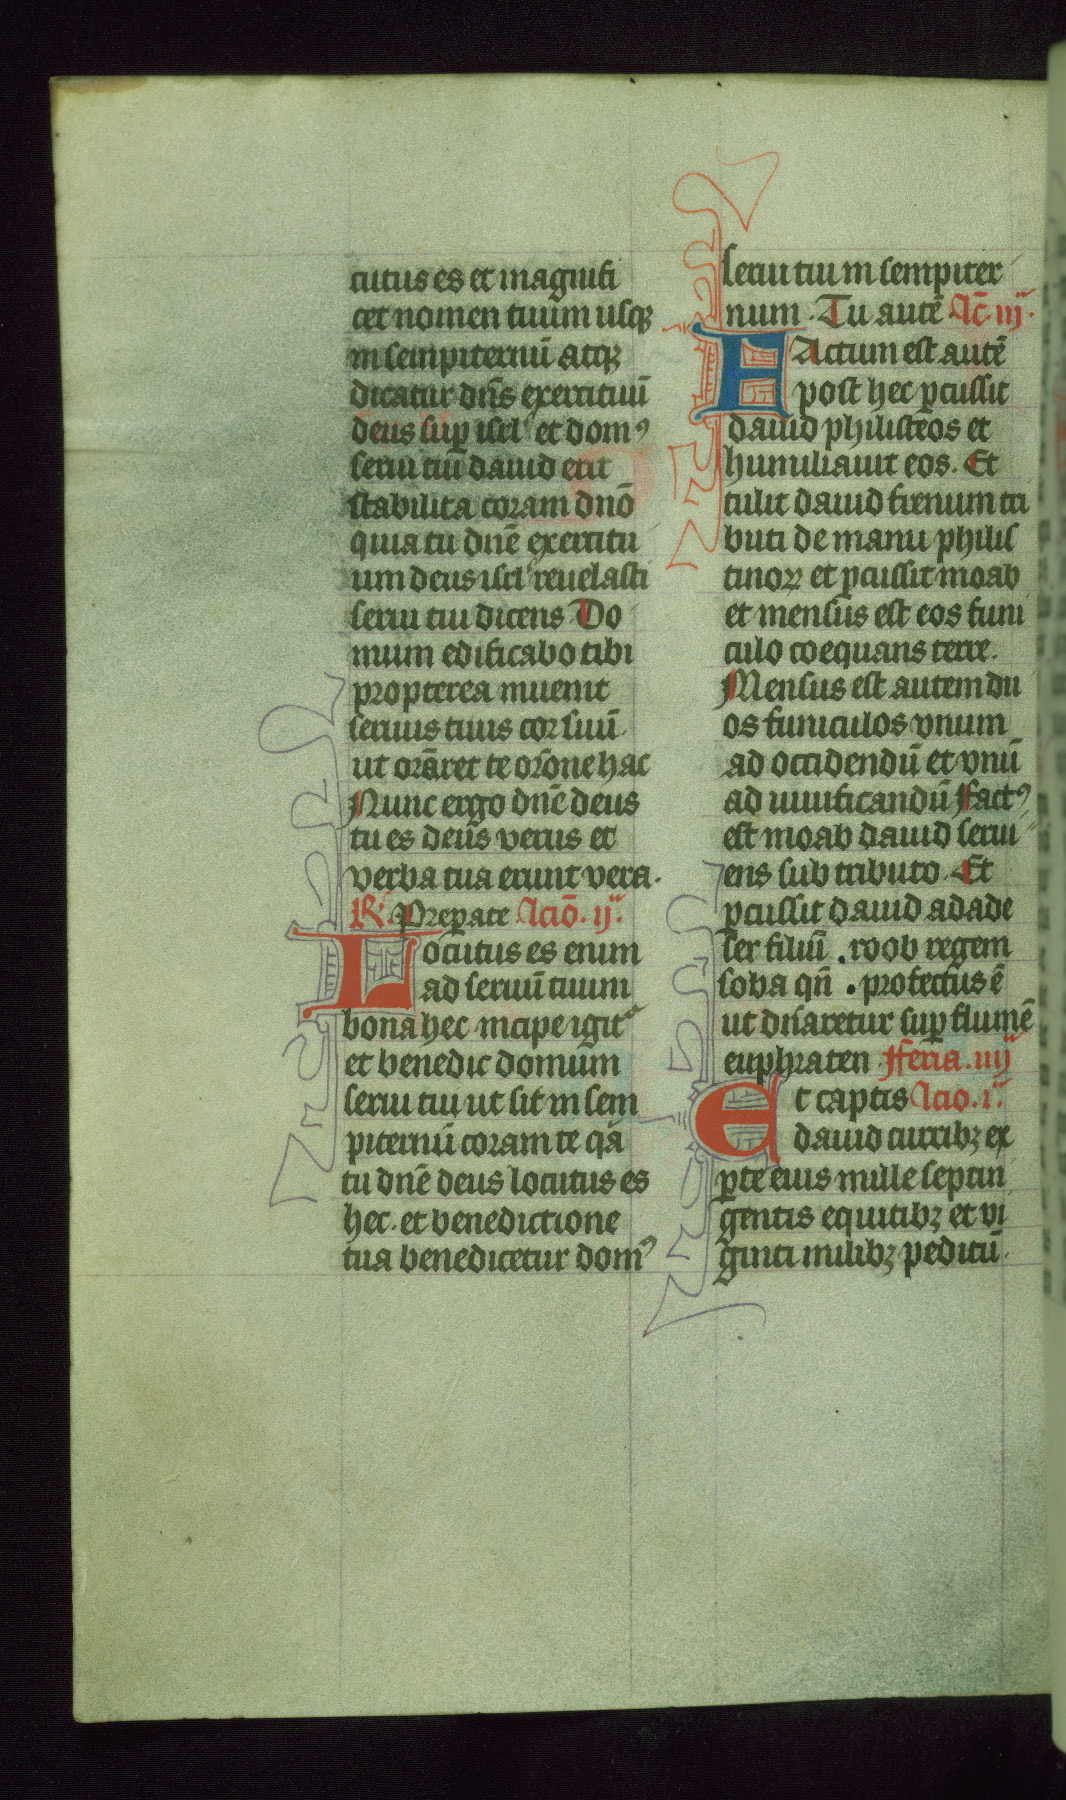 cutus es et magnifi
cet nomen tuum usqꝫ
in sempiternū atqꝫ
dicatur dn̄s exercituū
deus sup̲ isrl̓ et domꝰ
serui tui dauid erit
stabilita coram dn̄o
quia tu dn̄e exercitu
um deus isrl̓ reuelasti
serui tui dicens Do
mum edificabo tibi
propterea inuenit
seruus tuus cor suū
ut orāret te or̄one hac
Nunc ergo dn̄e deus
tu es deus verus et
verba tua erunt vera.
R̸. Prep̲ate Lcıō. ijª.
Locutus es enim
ad seruū tuum
bona hec incipe igit᷑
et benedic domum
serui tui ut sit in sem
piternū coram te qᷓa
tu dn̄e deus locutus es
hec. et benedictione
tua benedicetur domꝰ
serui tui in sempiter
num. Tu autē Lc̄. iijª.
FActum est autē
post hec p̲cussit
dauid philisteos et
humiliauit eos. Et
tulit dauid frenum tri
buti de manu philis
tinoꝝ et p̲cussit moab
et mensus est eos funi
culo coequans terre.
Mensus est autem du
os funiculos vnum
ad occidendū et vnū
ad uiuificandū ffactꝰ
est moab dauid serui
ens sub tributo. Et
p̲cussit dauid adade
ser filiū .roob regem
soba qn̄ . profectus ē
ut dn̄aretur sup̲ flumē
euphraten fferia. iiijª
Et captis Lcıo. iª.
dauid curribꝫ ex
p̲te eius mille septin
gentis equitibꝫ et vi
ginti milibꝫ peditū.